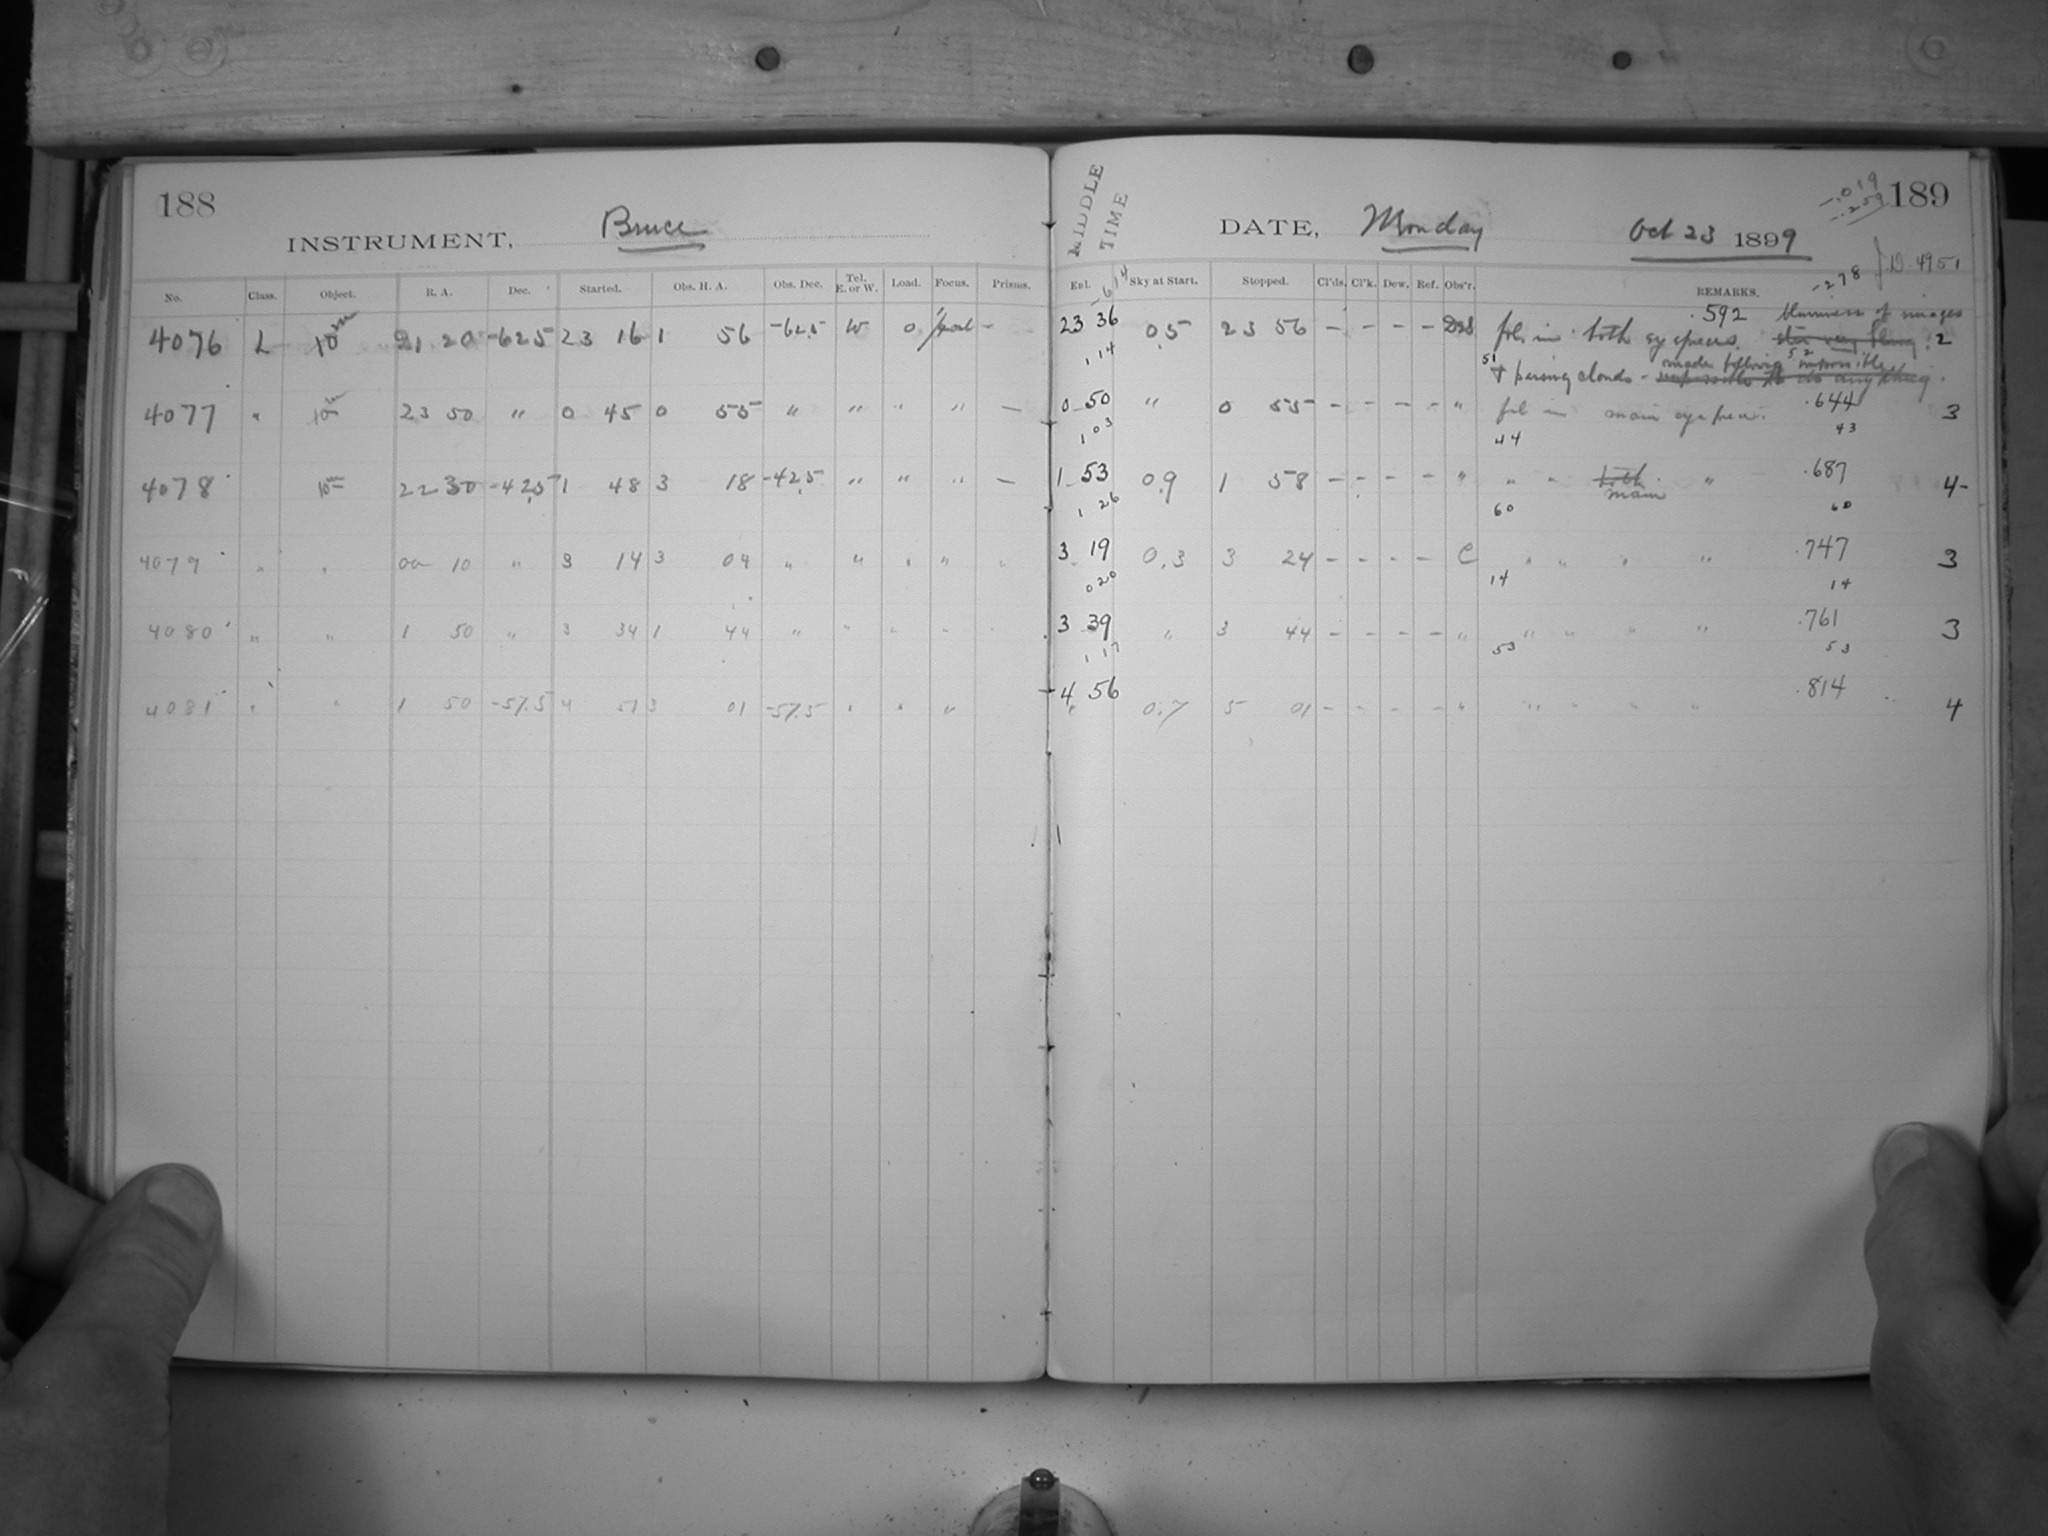 188
INSTRUMENT, Bruce
No. Class. Object. R. A. Dec. Started. Obs. H. A. Obs. Dec. Tel. E. or W. Load. Focus. Prisms.
4076 L 10m 21 20 -62.5 23 16 1 56 -62.5 W 0 -
4077 " 10m 23 50 " 0 45 0 55 " " " " -
4078 10m 22 30 -42.5 1 48 3 18 -42.5 " " " -
4079 " " 00 10 " 3 14 3 04 " " " " "
4080 " " 1 50 " 3 34 1 44 " " " "
4081 " " 1 50 -57.5 4 51 3 01 -57.5 " " "
MIDDLE TIME
DATE, Monday Oct 23 1899
-.019
-.259
189
-278 J.D. 4951
Exl. -614 Sky at Start. Stopped. Cl'ds. Cl'k. Dew. Ref. Obs'r. REMARKS.
.592 blurriness of images
23 36 0.5 23 56 - - - - fol. in both eyepieces. star very 2
1 14 51 52
+ passing clouds - made following impossible
impossible to do anything.
0 50 " 0 55 - - - - " fol in main eyepiece. .644 3
1 03 44 43
1 53 0.9 1 58 - - - - " " " both " .687 4-
main
1 26 60 60
3 19 0.3 3 24 - - - - C " " " " .747 3
0 20 14 14
3 39 " 3 44 - - - - " " " " " .761 3
1 17 53 53
4 56 0.7 5 01 - - - - " " " " " .814 4